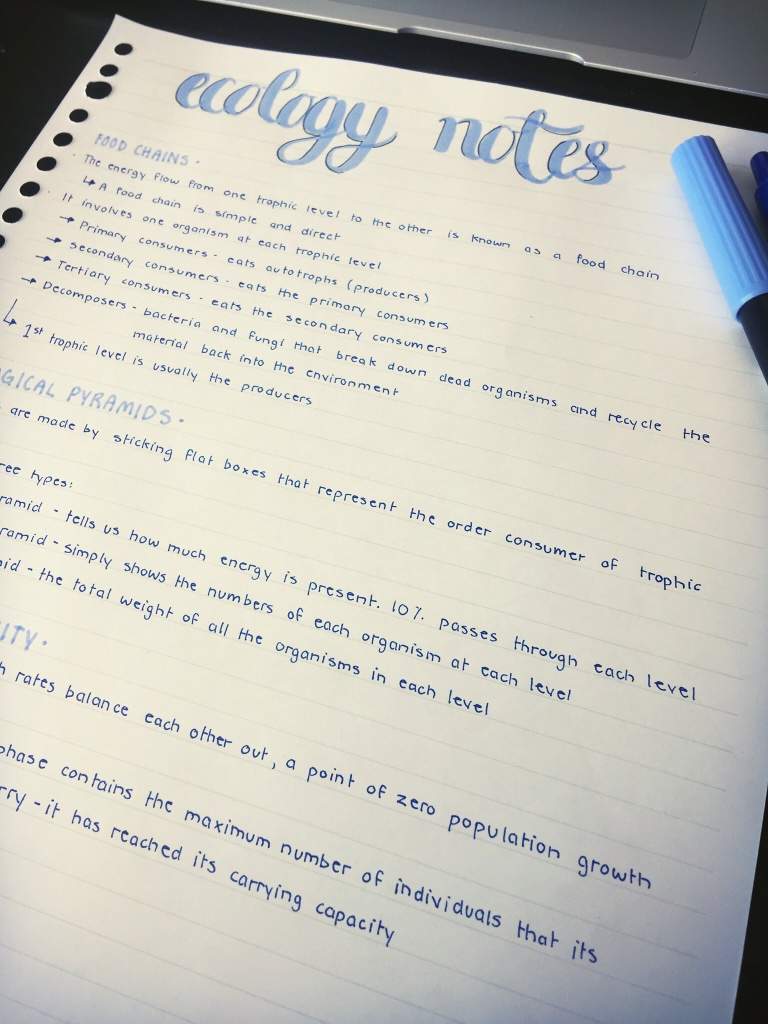 ecology notes
FOOD CHAINS ·
· The energy flow from one trophic level to the other is known as a food chain
↳ A food chain is simple and direct
· It involves one organism at each trophic level
→ Primary consumers - eats autotrophs (producers)
→ Secondary consumers - eats the primary consumers
→ Tertiary consumers - eats the secondary consumers
→ Decomposers - bacteria and fungi that break down dead organisms and recycle the
material back into the environment
↳ 1st trophic level is usually the producers
PYRAMIDS ·
are made by sticking flat boxes that represent the order consumer of trophic
types:
- tells us how much energy is present. 10% passes through each level
- simply shows the numbers of each organism at each level
- the total weight of all the organisms in each level
rates balance each other out, a point of zero population growth
phase contains the maximum number of individuals that its
- it has reached its carrying capacity